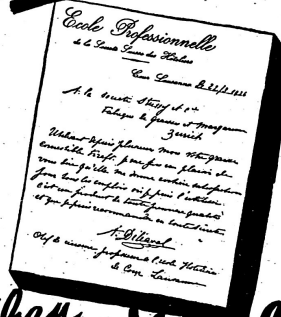 Ecole Professionnelle
de la Société Suisse des Hôteliers
Cour Lausanne le 22/2 1926
A la société Stüssy & Cie
Fabrique de Graisse et margarine
Zurich
Utilisant depuis plusieurs mois votre graisse
comestible je me fais un plaisir de
vous dire qu'elle me donne entière satisfaction
pour tous les emplois où je puis l'utiliser.
C'est un produit de toute première qualité
et que je puis recommander en toute
Chef de cuisine professeur à l'école Hôtelière
de Cour Lausanne